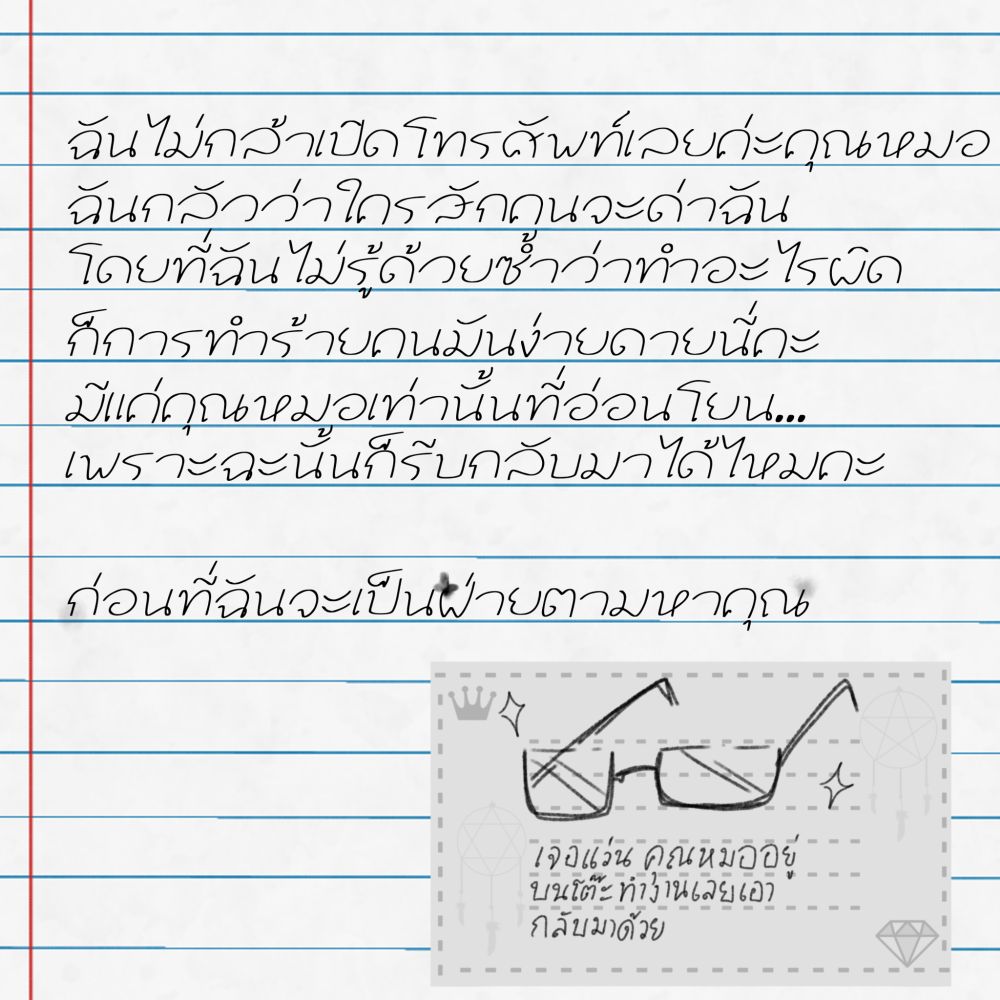 ฉันไม่กล้าเปิดโทรศัพท์เลยค่ะคุณหมอ
ฉันกลัวว่าใครสักคนจะด่าฉัน
โดยที่ฉันไม่รู้ด้วยซ้ำว่าทำอะไรผิด
ก็การทำร้ายคนมันง่ายดายนี่คะ
มีแค่คุณหมอเท่านั้นที่อ่อนโยน...
เพราะฉะนั้นก็รีบกลับมาได้ไหมคะ
ก่อนที่ฉันจะเป็นฝ่ายตามหาคุณ
เจอแว่น คุณหมออยู่
บนโต๊ะทำงานเลยเอา
กลับมาด้วย